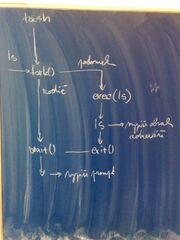 bash
ls
fork()
potomek
rodič
exec(ls)
ls → vypíše obsah
adresáře
wait()
exit()
vypíše prompt